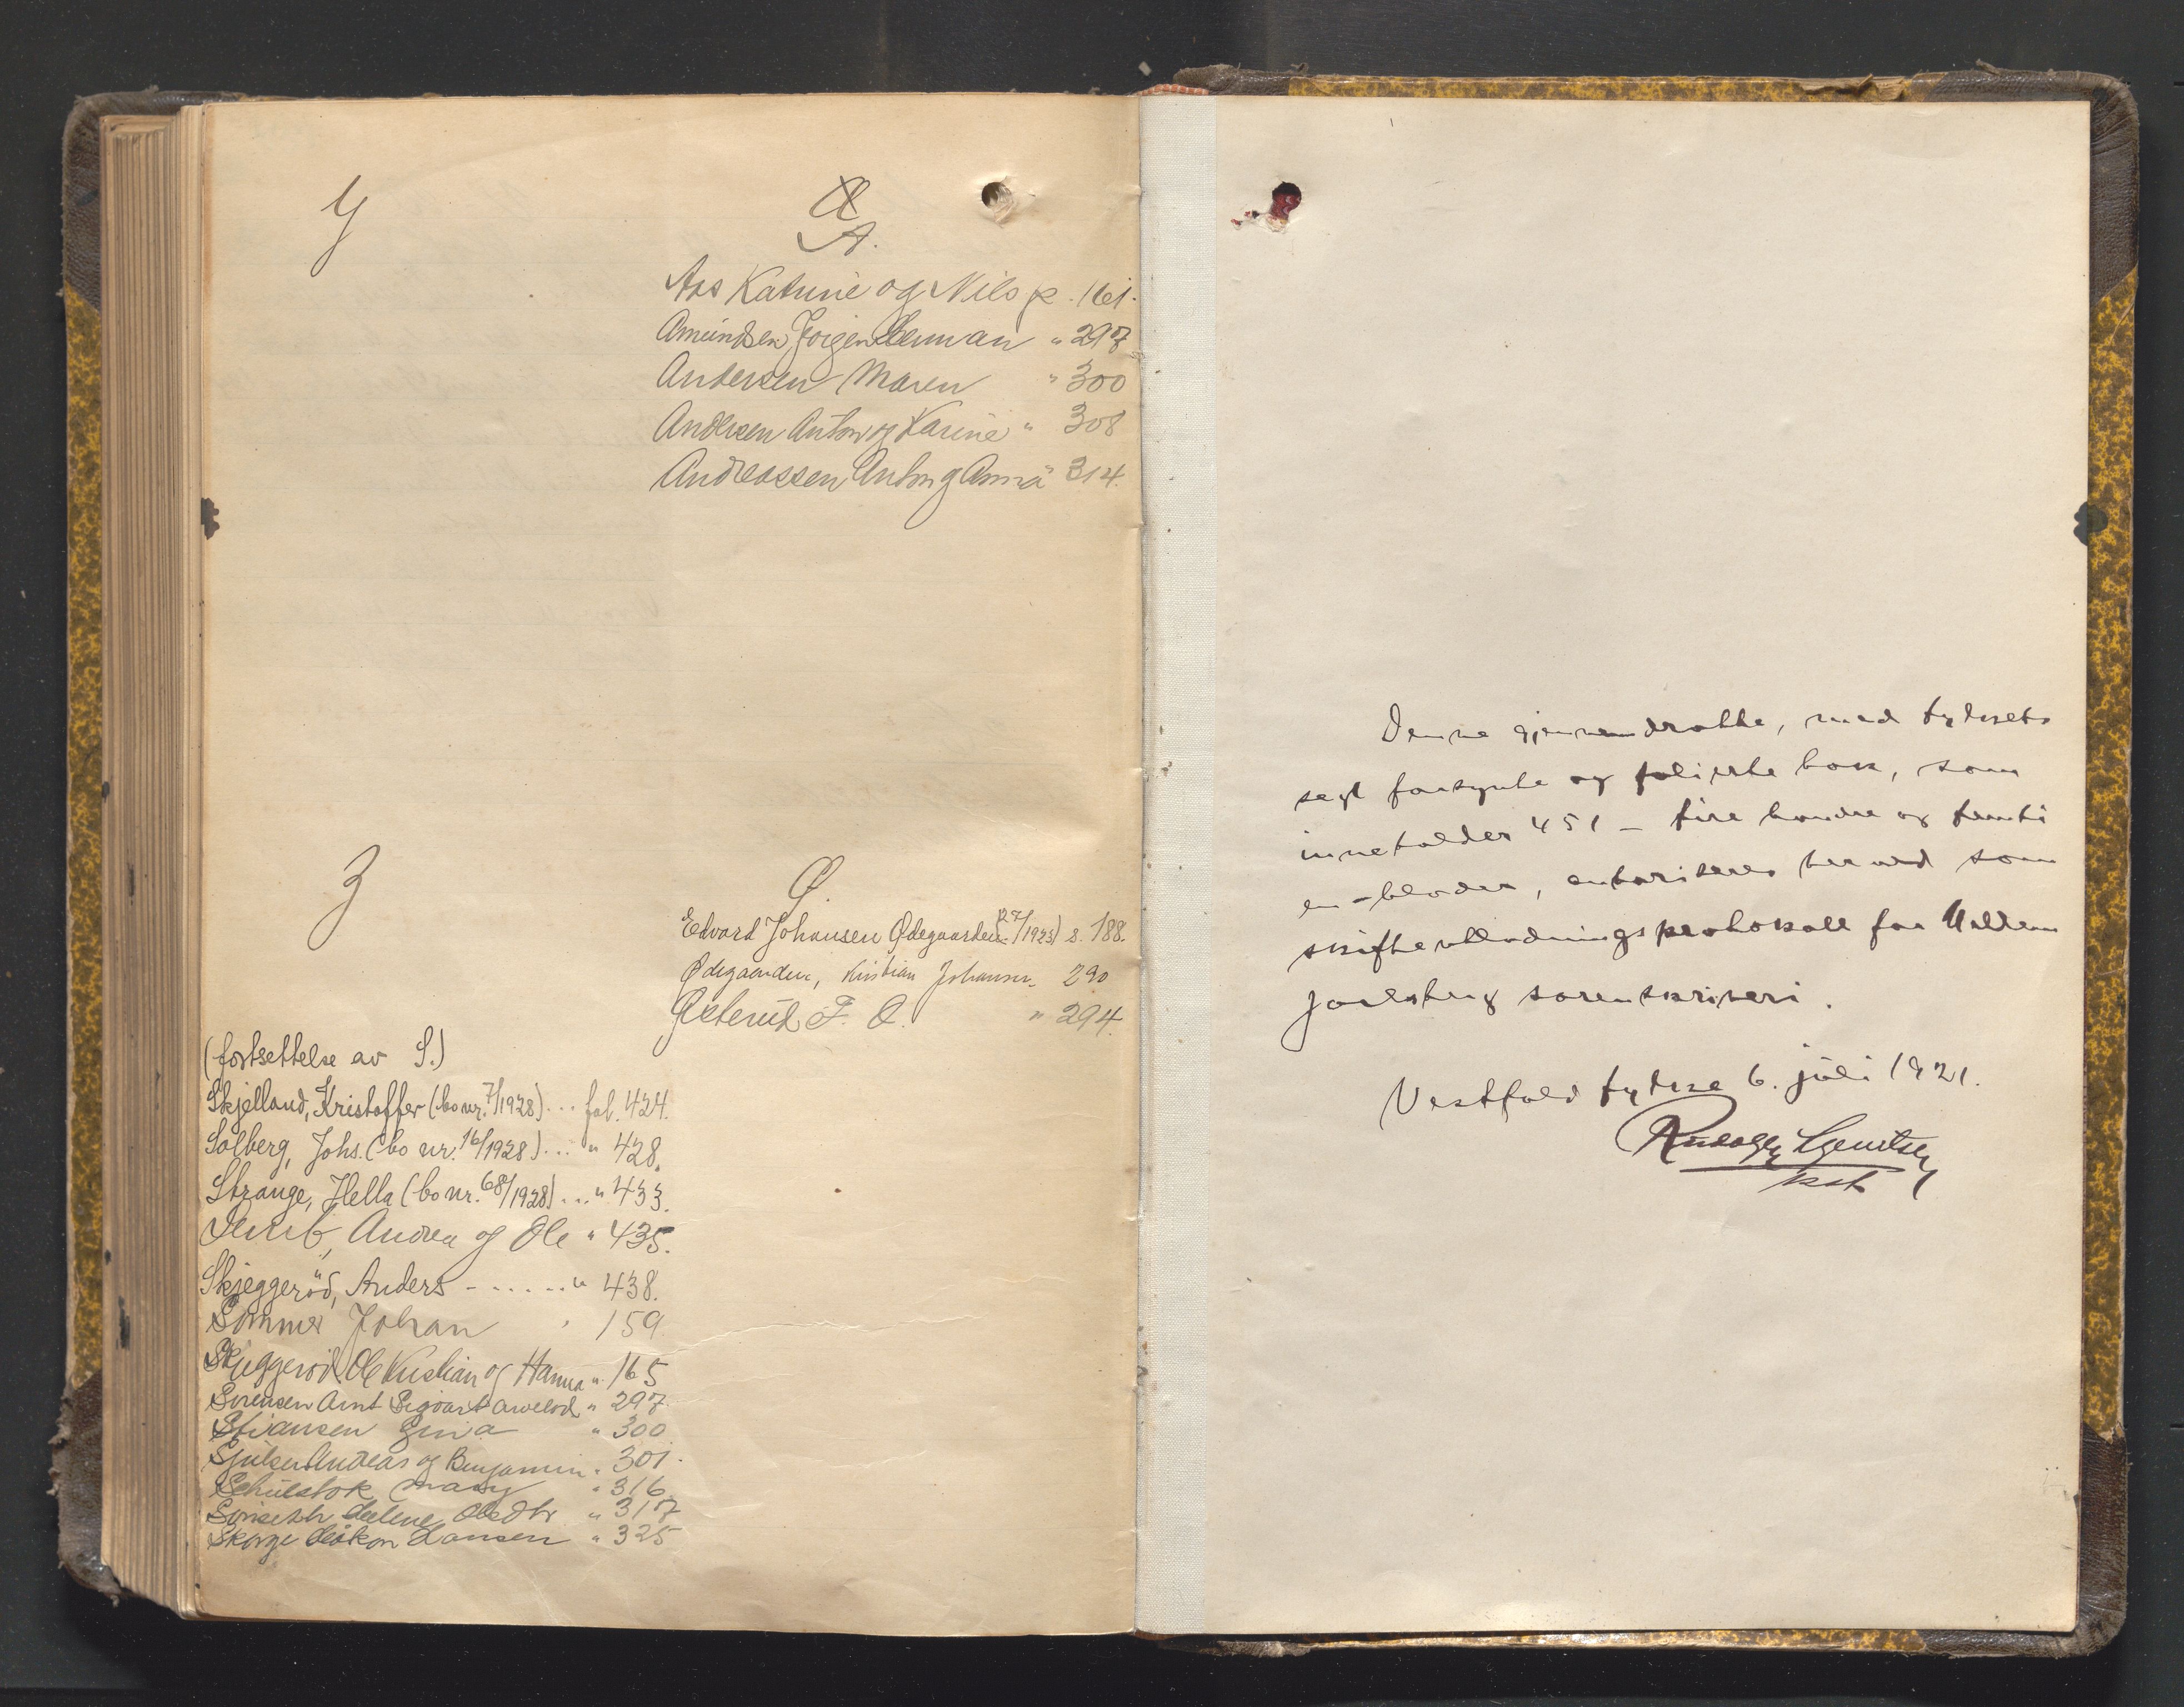 Y
Æ
A.
Aas Katrine og Nils p. 161.
Amundsen Jørgen Herman " 297
Andersen Maren " 300
Andersen Anton og Karine " 308
Andreassen Anton og Anna " 314.
Z
Ø.
Edvard Johansen Ødegaarden (27/1923) s. 188.
Ødegaarden, Kristian Johansen 290
Østerud F. O. " 294.
(fortsettelse av S.)
Skjelland, Kristoffer (bo nr. 7/1928) ... fol. 424.
Solberg, Johs. (bo nr. 16/1928) ... " 428.
Strange, Hella (bo nr. 68/1928) ... " 433.
Andrea og Ole " 435.
Skjeggeröd, Anders - ..... " 438.
Sommer Johan " 159.
Skjeggerød Ole Kristian og Hanna " 165
Sørensen Arnt Sigvart " 297
Stiansen Gina " 300
Andreas og Benjamin " 301.
Mary " 316
Helene Olsdtr " 317
Skorge Håkon Hansen " 325
Denne gjennemdratte, med fylkets
segl forsynte og folierte bok, som
inneholder 451 - fire hundre og femti
en - blader, autoriseres herved som
skifteutlodningsprotokoll for Mellem
Jarlsberg sorenskriveri.
Vestfold fylke 6. juli 1921.
kst